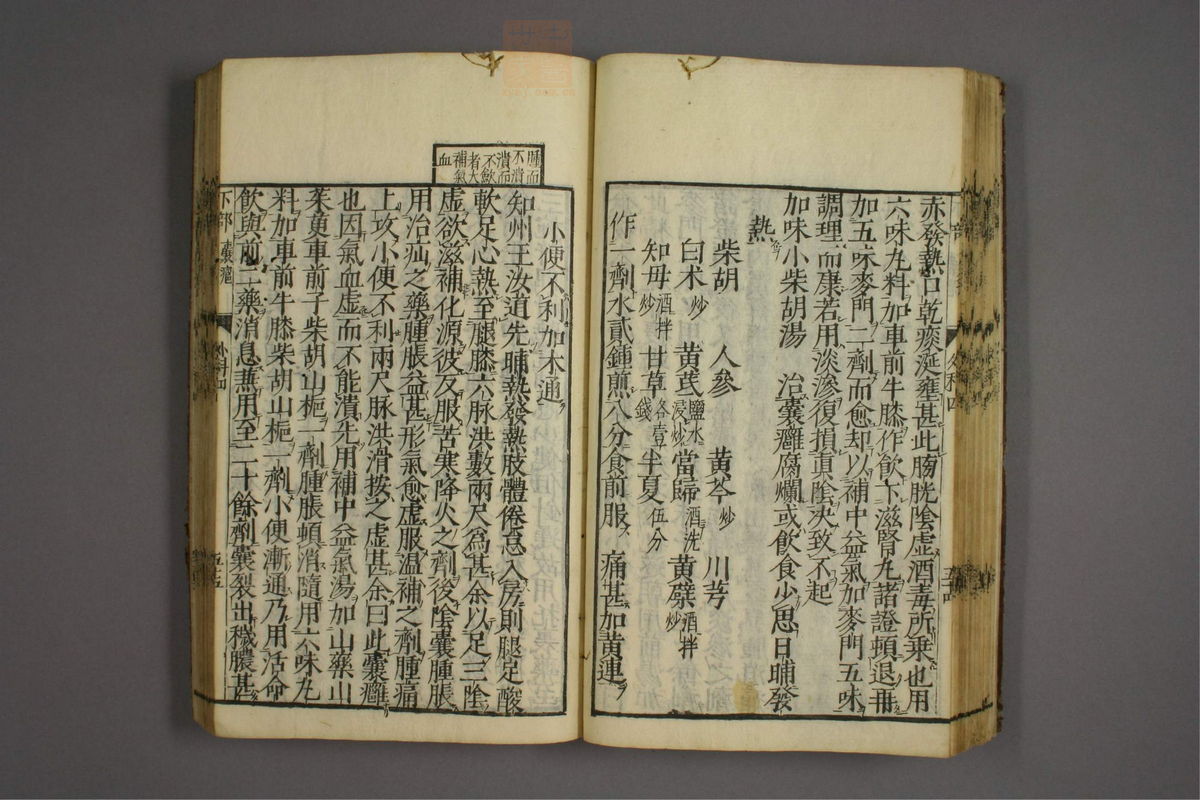 赤發熱口乾痰涎壅甚此膀胱陰虛酒毒所乗也用
六味丸料加車前牛膝作飲下滋腎丸諸證頓退再
加五味麥門二劑而愈却以補中益氣加麥門五味
調理而康若用淡滲復損真陰決致不起
加味小柴胡湯 治囊癰腐爛或飲食少思日晡發
熱
柴胡 人參 黃芩炒 川芎
白术炒 黃芪鹽水浸炒 當歸酒洗 黃蘗酒拌炒
知母酒拌炒 甘草各壹錢 半夏伍分
作一劑水貳鍾煎八分食前服 痛甚加黃連
小便不利加木通
知州王汝道先晡熱發熱肢體倦怠入房則腿足酸
軟足心熱至腿膝六脉洪數兩尺為甚余以足三陰
虛欲滋補化源彼反服苦寒降火之劑後陰囊腫脹
用治疝之藥腫脹益甚形氣愈虛服溫補之劑腫痛
上攻小便不利兩尺脉洪滑按之虛甚余曰此囊癰
也因氣血虛而不能潰先用補中益氣湯加山藥山
茱萸車前子柴胡山梔一劑腫脹頓消隨用六味丸
料加車前牛膝柴胡山梔一劑小便漸通乃用活命
飲與前二藥消息兼用至二十餘劑囊裂出穢膿甚
腫而
不潰
潰而
不斂
者大
補氣
血
下部 囊癰 外科四 五十五